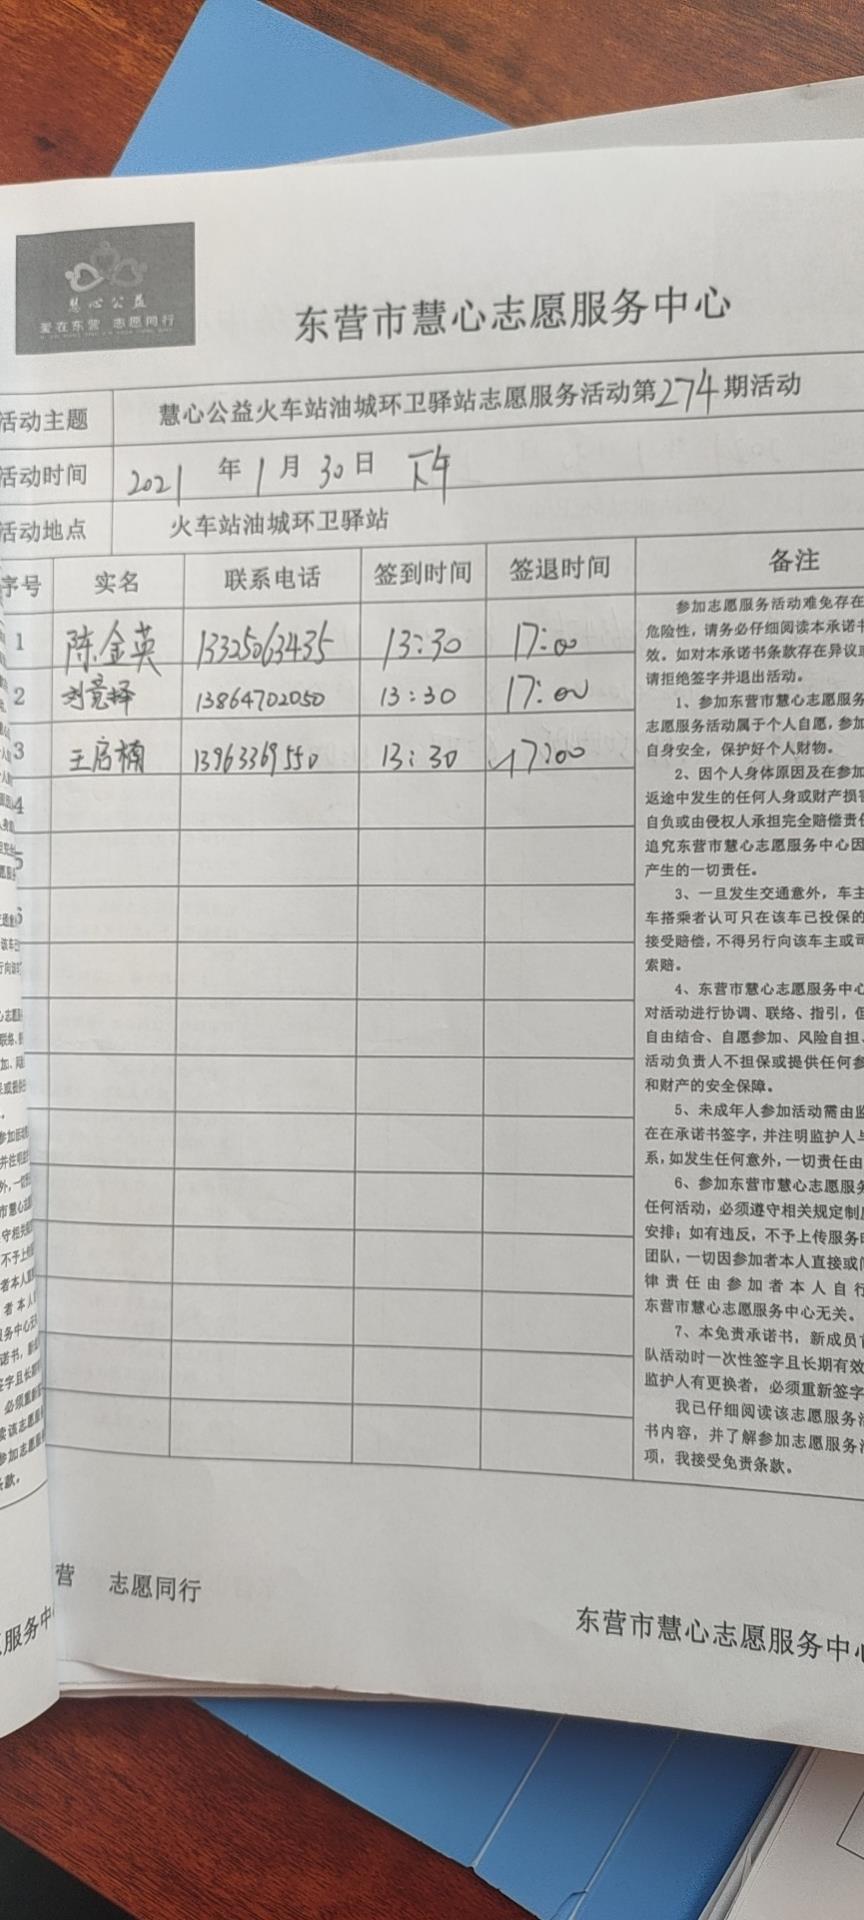 慧心公益
爱在东营 志愿同行
东营市慧心志愿服务中心
活动主题 慧心公益火车站油城环卫驿站志愿服务活动第274期活动
活动时间 2021年1月30日 下午
活动地点 火车站油城环卫驿站
序号 实名 联系电话 签到时间 签退时间 备注
1 陈金英 13325063435 13:30 17:00
2 刘竞择 13864702050 13:30 17:00
3 王启楠 13963369550 13:30 17:00
4
5
6
参加志愿服务活动难免存在
危险性，请务必仔细阅读本承诺书
效。如对本承诺书条款存在异议或
请拒绝签字并退出活动。
1、参加东营市慧心志愿服务
志愿服务活动属于个人自愿，参加
自身安全，保护好个人财物。
2、因个人身体原因及在参加
返途中发生的任何人身或财产损害
自负或由侵权人承担完全赔偿责任
追究东营市慧心志愿服务中心因
产生的一切责任。
3、一旦发生交通意外，车主
车搭乘者认可只在该车已投保的
接受赔偿，不得另行向该车主或司
索赔。
4、东营市慧心志愿服务中心
对活动进行协调、联络、指引，但
自由结合、自愿参加、风险自担、
活动负责人不担保或提供任何参
和财产的安全保障。
5、未成年人参加活动需由监
在在承诺书签字，并注明监护人与
系，如发生任何意外，一切责任由
6、参加东营市慧心志愿服务
任何活动，必须遵守相关规定制度
安排；如有违反，不予上传服务时
团队，一切因参加者本人直接或间
律责任由参加者本人自行
东营市慧心志愿服务中心无关。
7、本免责承诺书，新成员首
队活动时一次性签字且长期有效
监护人有更换者，必须重新签字
我已仔细阅读该志愿服务活
书内容，并了解参加志愿服务活
项，我接受免责条款。
营 志愿同行
东营市慧心志愿服务中心